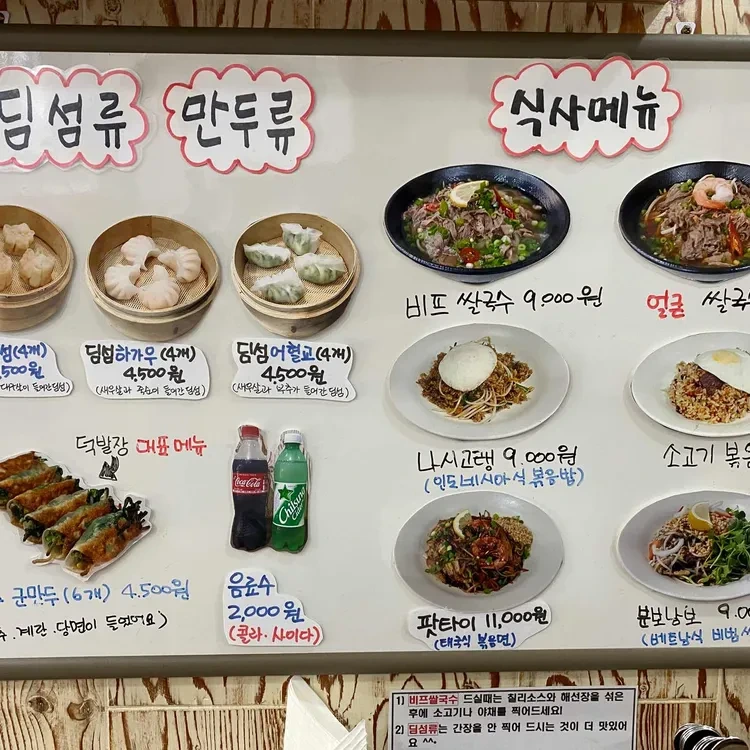 딤섬류
만두류
식사메뉴
섬(4개)
,500원
딤섬하가우(4개)
4,500원
(새우살과 죽순이 들어간딤섬)
딤섬어혈교(4개)
4,500원
(새우살과 부추가 들어간딤섬)
비프 쌀국수 9,000원
얼큰 쌀국
나시고랭 9,000원
(인도네시아식 볶음밥)
소고기 볶음
덕발장 대표메뉴
군만두(6개) 4,500원
계란.당면이 들었어요)
Coca-Cola
Chilsung
Cider
음료수
2,000원
(콜라.사이다)
팟타이 11,000원
(태국식 볶음면)
분보남보 9,0
(베트남식 비빔
1) 비프쌀국수 드실때는 칠리소스와 해선장을 섞은
후에 소고기나 야채를 찍어드세요!
2) 딤섬류는 간장을 안 찍어 드시는 것이 더 맛있어
요 ^^.